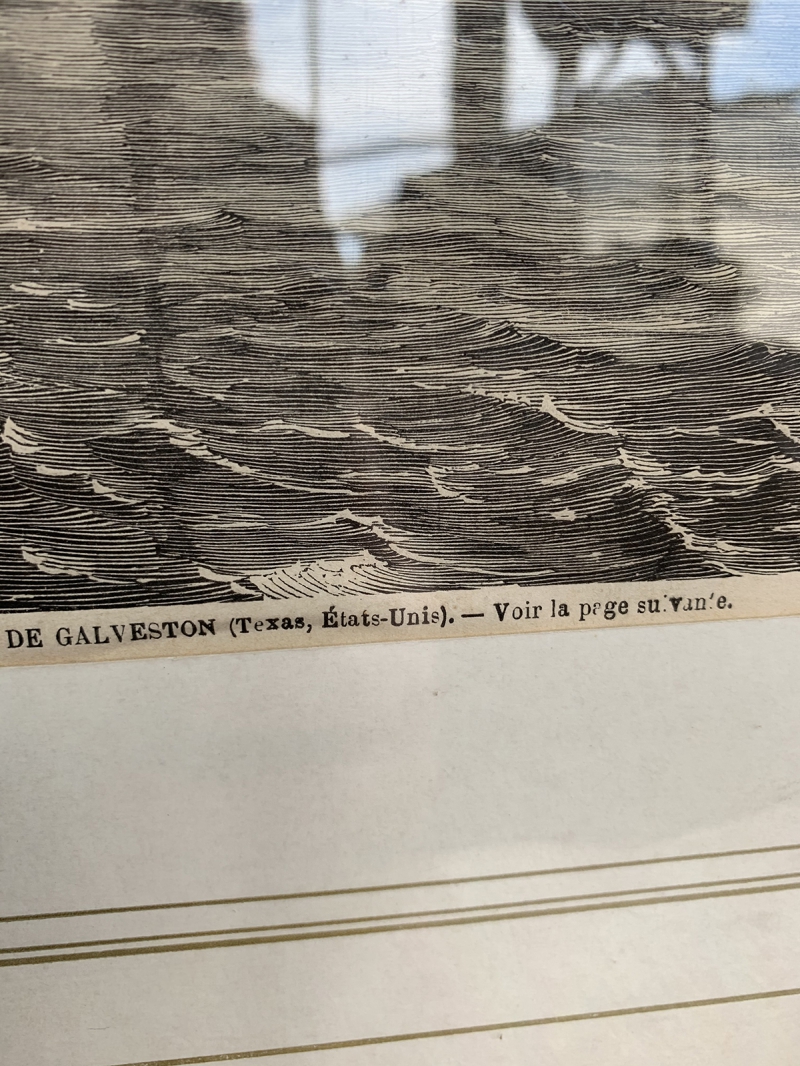 DE GALVESTON (Texas, États-Unis). — Voir la page suivante.